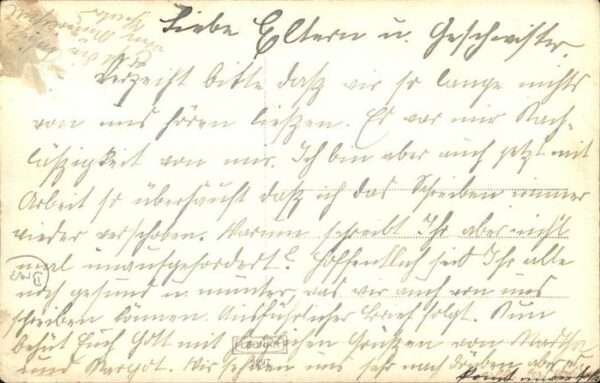 Liebe Eltern u. Geschwister,
Verzeiht bitte dasz wir so lange nichts
von uns hören lieszen. Es war nur Nach-
läszigkeit von mir. Ich bin aber auch jetzt mit
Arbeit so überhäuft dasz ich das Schreiben immer
wieder verschoben. Warum schreibt Ihr aber nicht
mal unaufgefordert? Hoffentlich seid Ihr alle
noch gesund u. munter, was wir auch von uns
schreiben können. Ausführlicher Brief folgt. Nun
behüt Euch Gott mit Grüszen von Martha
und Margot. Wir sehnen uns sehr nach drüben aber es